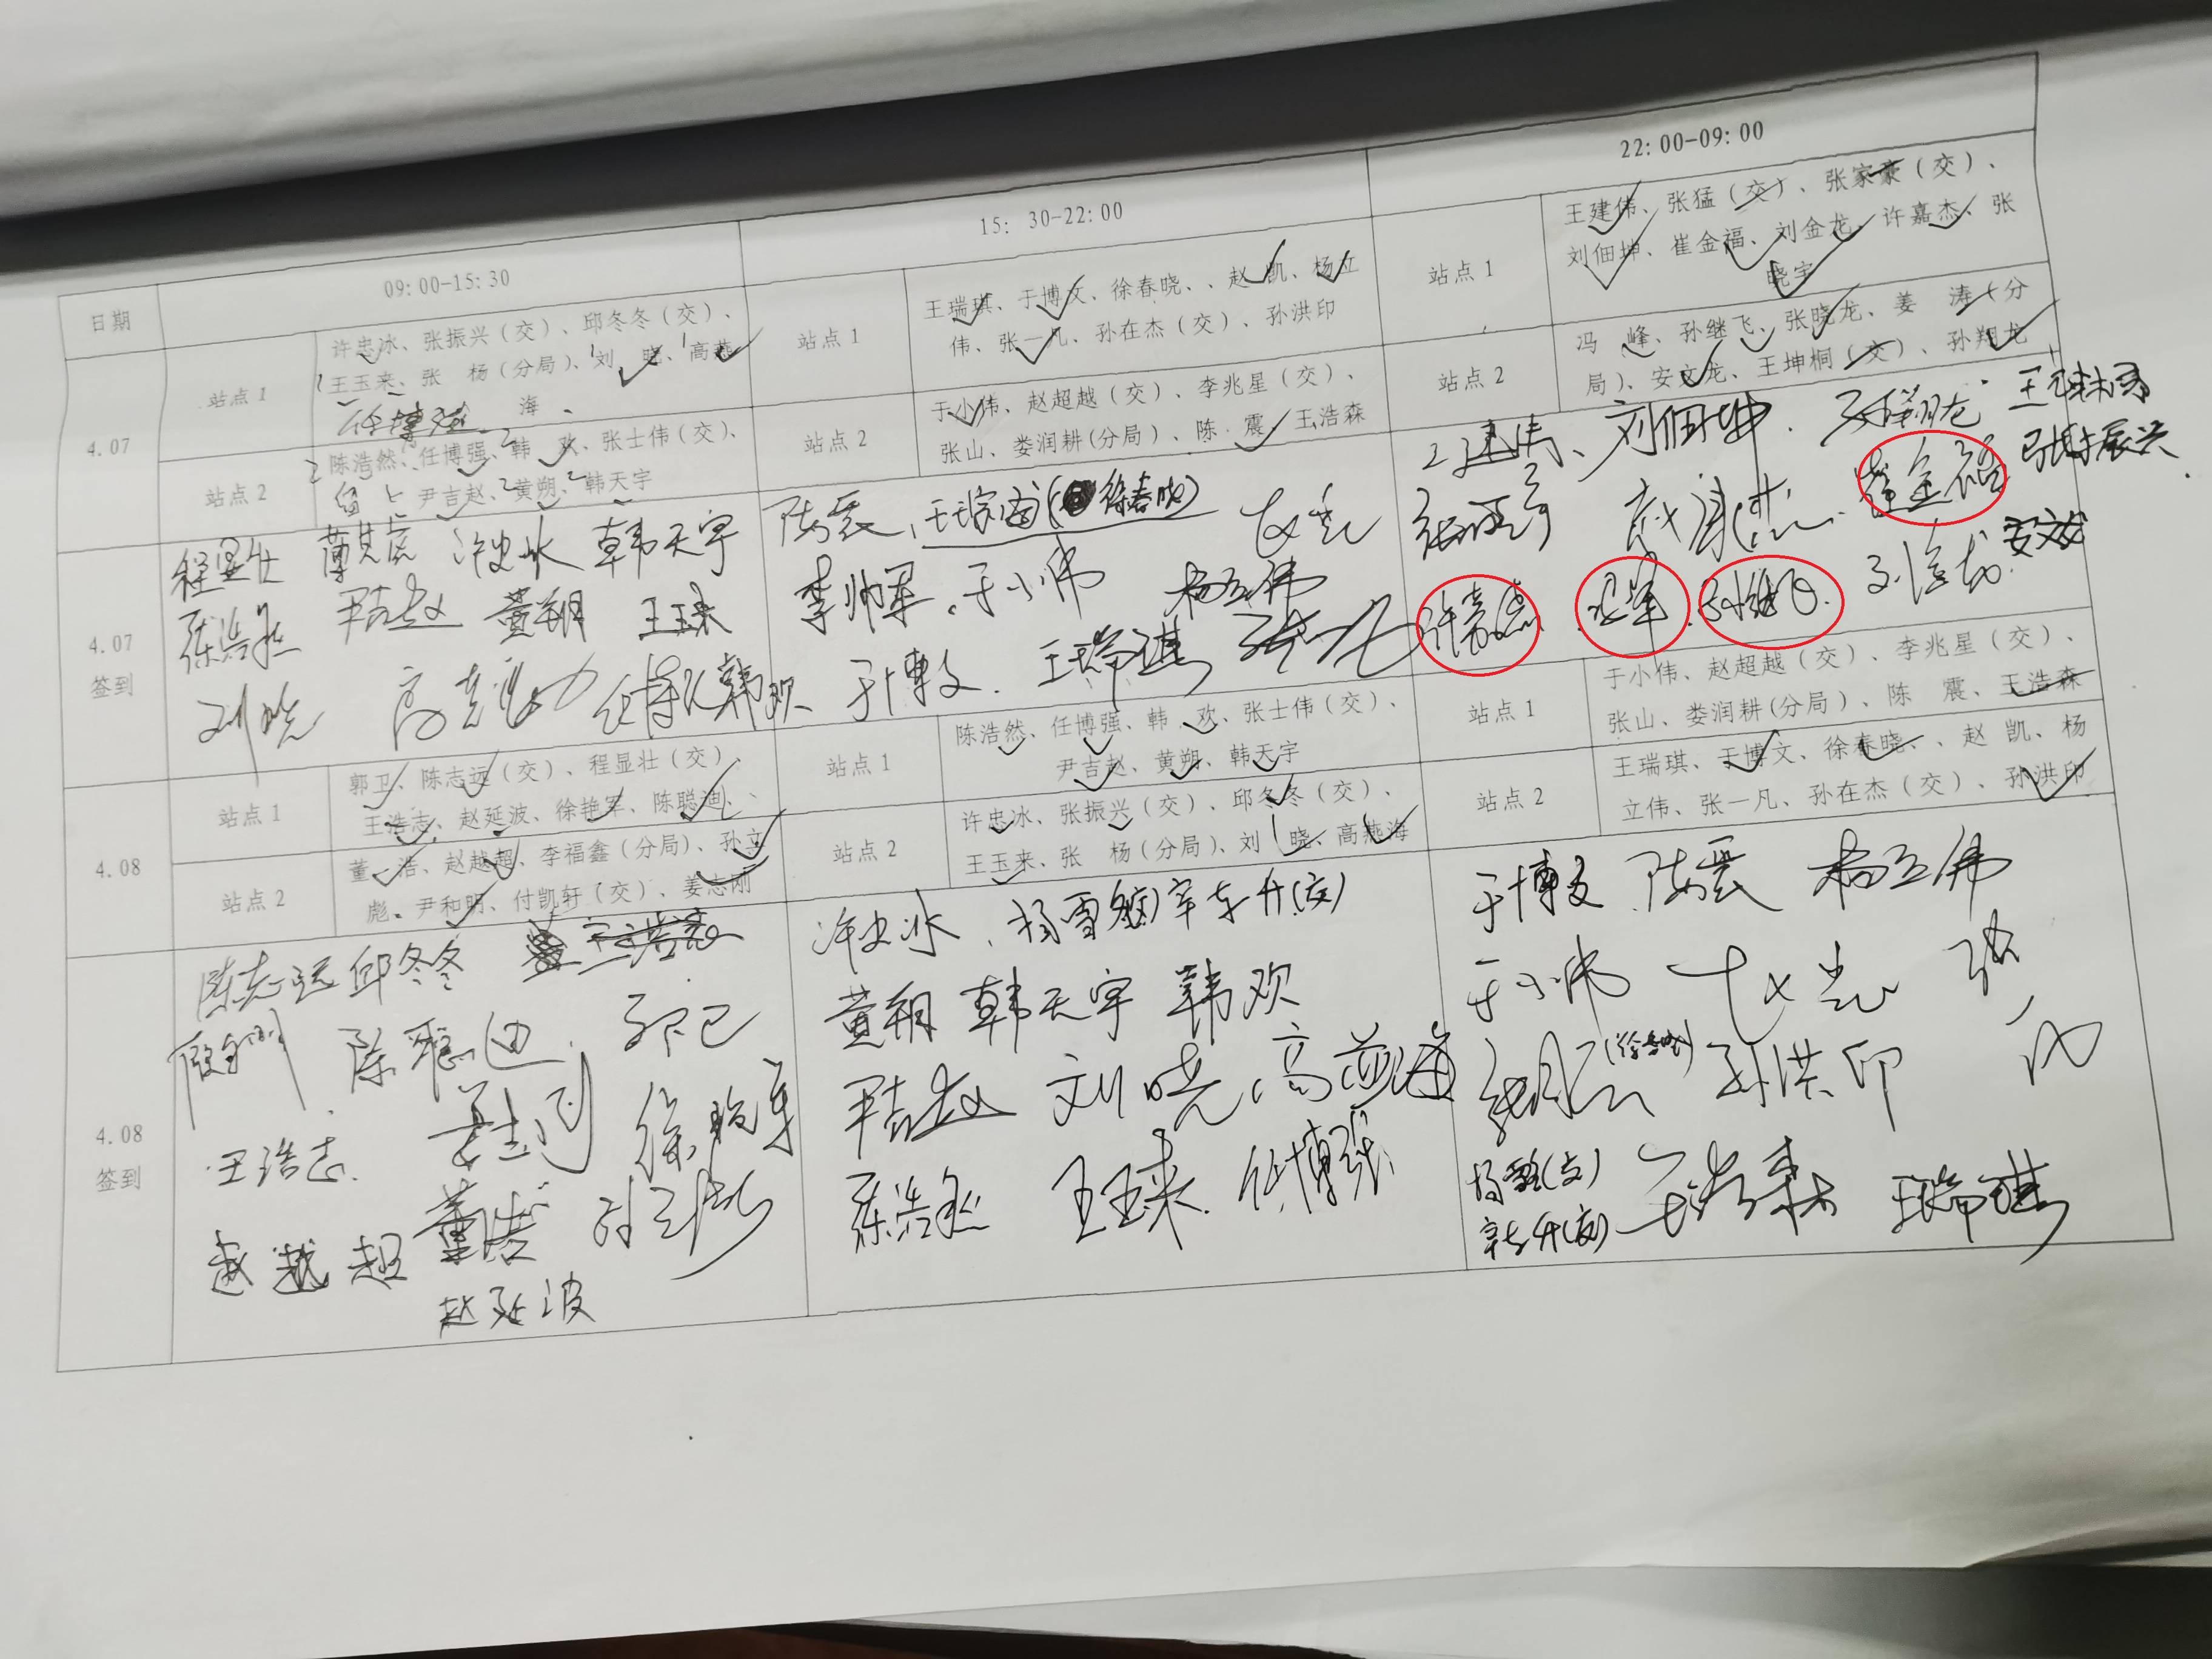 日期
09:00-15:30
15: 30-22:00
22:00-09:00
4.07
站点1
许忠冰、张振兴(交)、邱冬冬(交)、
王玉来、张 杨(分局)、刘 晓、高燕
海
任博强
站点1
王瑞琪、于博文、徐春晓、、赵 凯、杨立
伟、张一凡、孙在杰(交)、孙洪印
站点1
王建伟、张猛(交)、张家豪(交)、
刘佃坤、崔金福、刘金龙、许嘉杰、张
晓宇
站点2
陈浩然、任博强、韩 欢、张士伟(交)、
尹吉赵、黄朔、韩天宇
站点2
于小伟、赵超越(交)、李兆星(交)、
张山、娄润耕(分局)、陈 震、王浩森
站点2
冯 峰、孙继飞、张晓龙、姜 涛(分
局)、安文龙、王坤桐(交)、孙翔龙
4.07
签到
程显壮 许忠冰 韩天宇
陈浩然 尹吉赵 黄朔 王玉来
刘晓 高燕海 任博强 韩欢
陈震、(徐春晓) 赵凯
李帅军 于小伟 杨立伟
于博文 王瑞琪 张一凡
王建伟、刘佃坤 孙翔龙
张晓宇 崔金福 张振兴
许嘉杰 冯峰 孙继飞 安文龙
4.08
站点1
郭卫、陈志远(交)、程显壮(交)、
王浩志、赵延波、徐艳军、陈聪迪、
站点1
陈浩然、任博强、韩 欢、张士伟(交)、
尹吉赵、黄朔、韩天宇
站点1
于小伟、赵超越(交)、李兆星(交)、
张山、娄润耕(分局)、陈 震、王浩森
站点2
董一浩、赵越超、李福鑫(分局)、孙立
彪、尹和明、付凯轩(交)、姜志刚
站点2
许忠冰、张振兴(交)、邱冬冬(交)、
王玉来、张 杨(分局)、刘 晓、高燕海
站点2
王瑞琪、于博文、徐春晓、、赵 凯、杨
立伟、张一凡、孙在杰(交)、孙洪印
4.08
签到
陈志远 邱冬冬
陈聪迪
王浩志 姜志刚 徐艳军
赵越超 董一浩 孙立彪
赵延波
许忠冰、辛东升(交)
黄朔 韩天宇 韩欢
尹吉赵 刘晓、高燕海
陈浩然 王玉来 任博强
于博文 陈震 杨立伟
于小伟 赵凯 张一凡
(徐春晓) 孙洪印
辛东升(交) 王浩森 王瑞琪